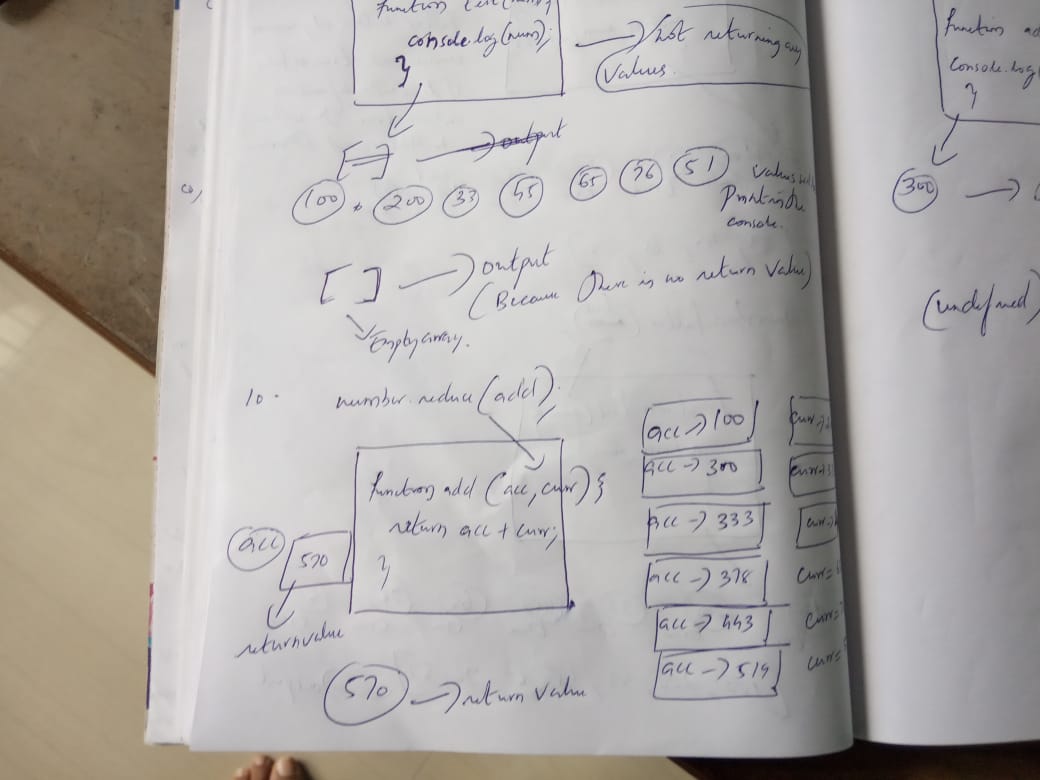 console.log(num);
}
Not returning any
Values.
output
100, 200 33 45 65 76 51
Values
Print in the
console.
[ ] → output
(Because there is no return value)
Empty array.
10. number.reduce(add);
function add (acc, curr) {
return acc + curr;
}
acc 570
return value
570 → return value
acc → 100
acc → 300
acc → 333
acc → 378
acc → 443
acc → 519
curr
curr
curr
curr=
curr=
curr=
function ad
console.log(
}
300 →
(undefined)